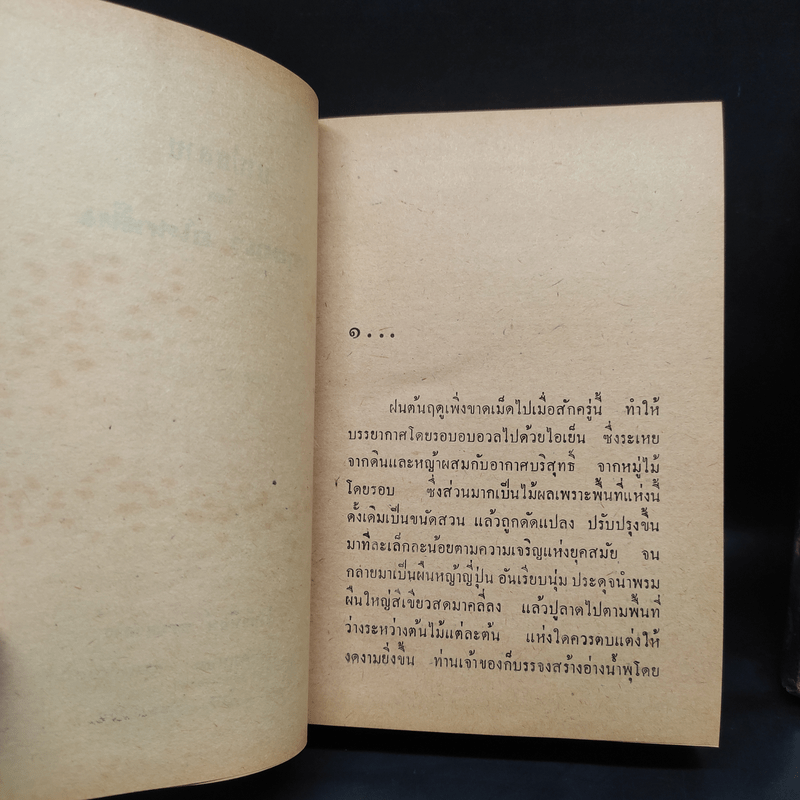 ๑...
ฝนต้นฤดูเพิ่งขาดเม็ดไปเมื่อสักครู่นี้ ทำให้
บรรยากาศโดยรอบอบอวลไปด้วยไอเย็น ซึ่งระเหย
จากดินและหญ้าผสมกับอากาศบริสุทธิ์ จากหมู่ไม้
โดยรอบ ซึ่งส่วนมากเป็นไม้ผลเพราะพื้นที่แห่งนี้
ดั้งเดิมเป็นขนัดสวน แล้วถูกดัดแปลง ปรับปรุงขึ้น
มาทีละเล็กละน้อยตามความเจริญแห่งยุคสมัย จน
กลายมาเป็นผืนหญ้าญี่ปุ่น อันเรียบนุ่ม ประดุจนำพรม
ผืนใหญ่สีเขียวสดมาคลี่ลง แล้วปูลาดไปตามพื้นที่
ว่างระหว่างต้นไม้แต่ละต้น แห่งใดควรตบแต่งให้
งดงามยิ่งขึ้น ท่านเจ้าของก็บรรจงสร้างอ่างน้ำพุโดย